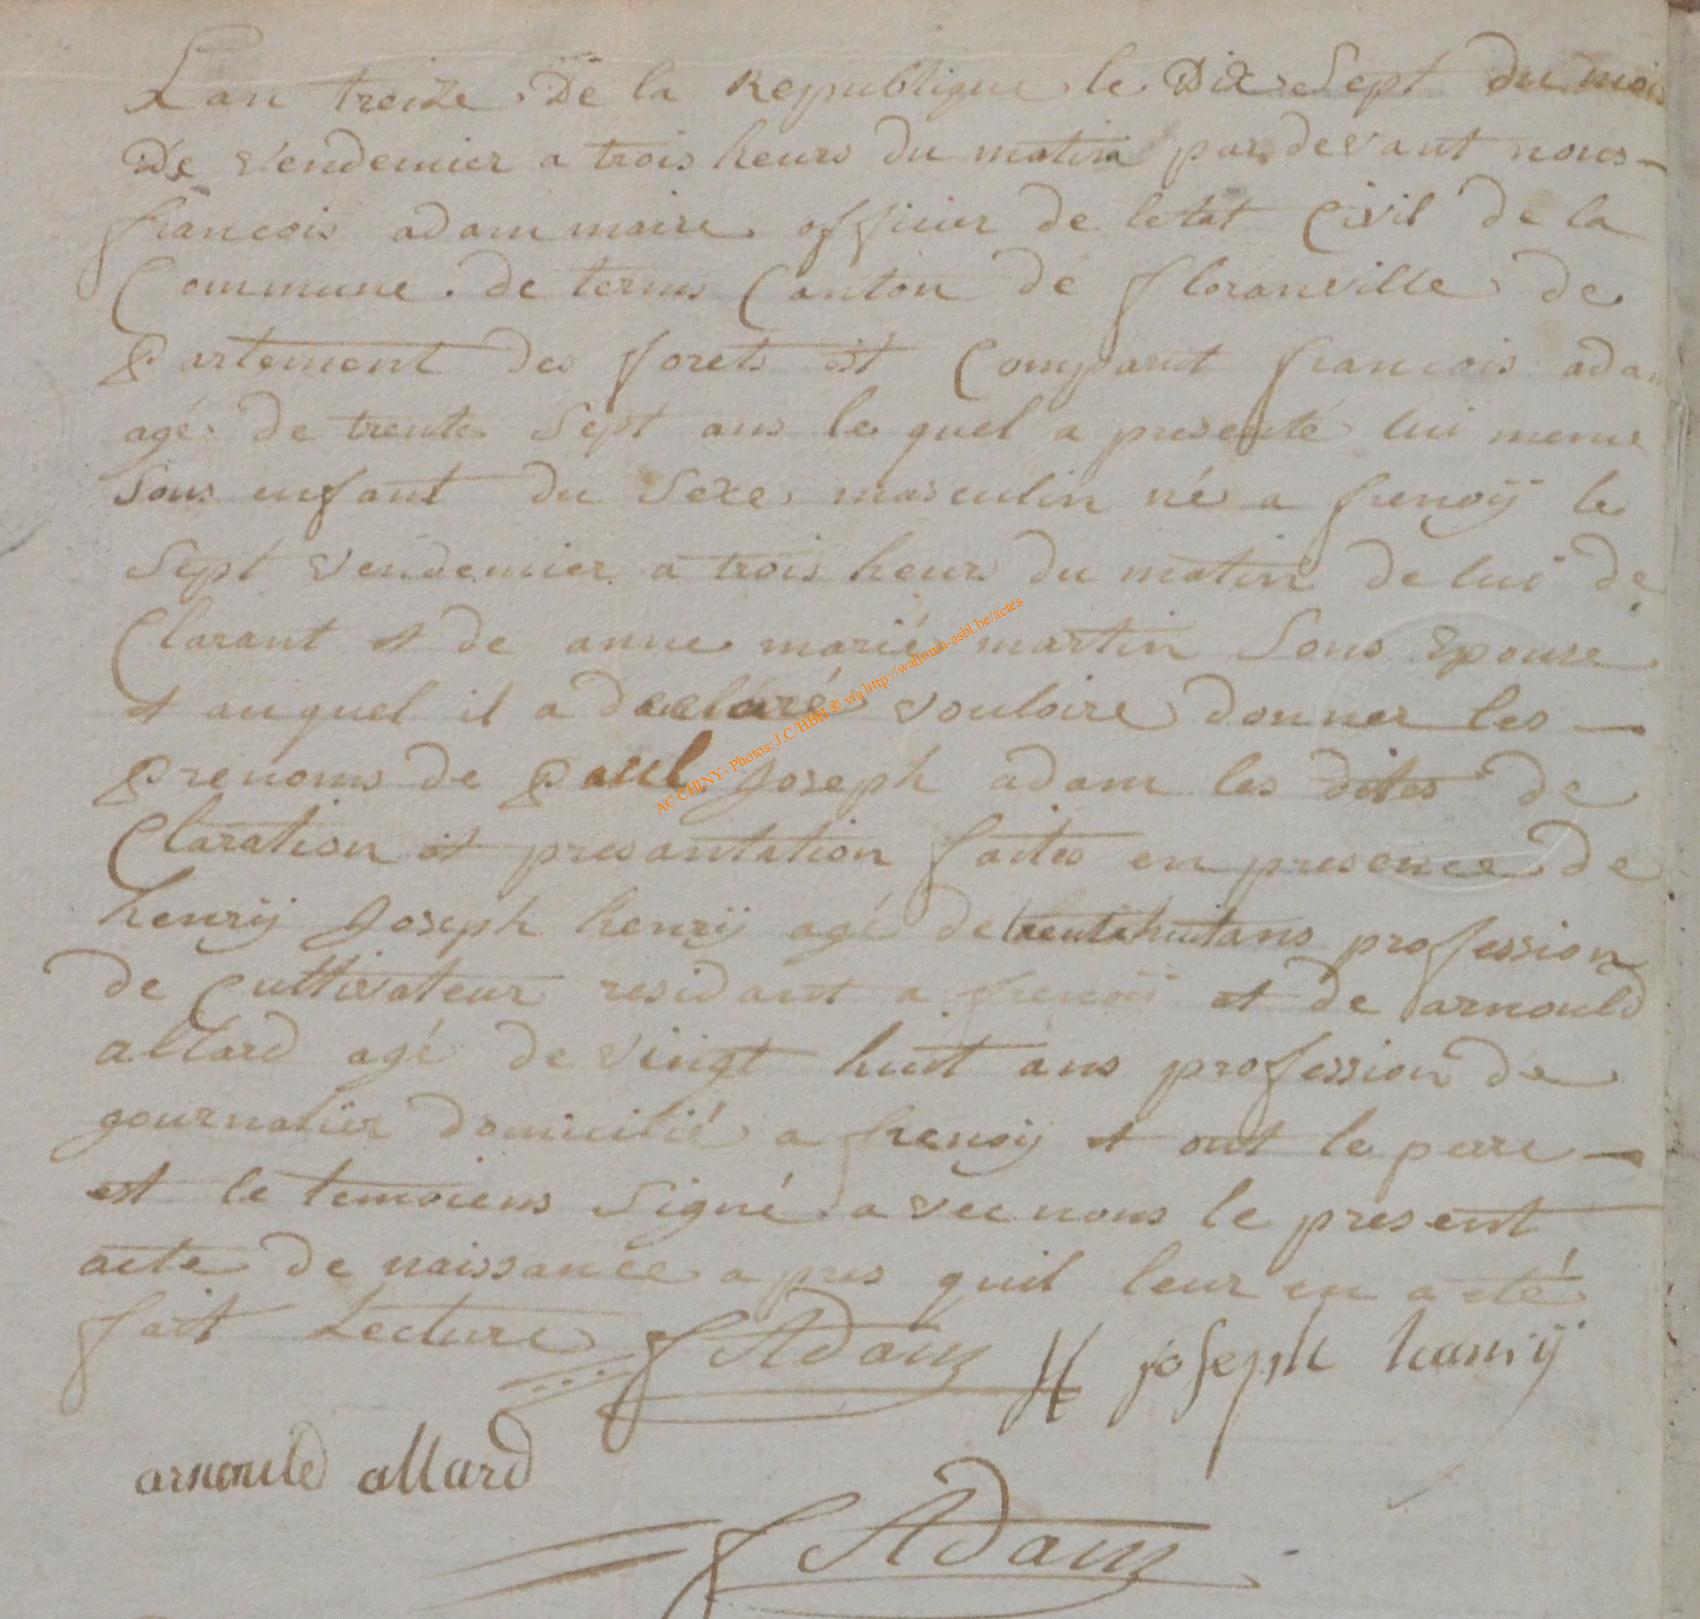 Lan treize De la Republique le Dix Sept du mois
De vendemier a trois heurs du matin par devant nous
francois adam maire officier de letat Civil de la
Commune de termes Canton de floranville de
partement des forets est Comparut francois adam
agé de trente Sept ans le quel a presenté lui meme
Sons enfant du Sexe masculin né a frenoÿ le
Sept vendemier a trois heurs du matin de lui de
Clarant et de anne marié martin Sons Epouse
et auquel il a declaré vouloire donner les
prenoms de paul Joseph adam les dites de
Claration et presantation faites en presence de
henrÿ Joseph henrÿ agé de trente huit ans profession
de Cultivateur residant a frenoÿ et de arnould
allard agé de vingt huit ans profession de
journalier domicilié a frenoÿ et ont le pere
est le temoiens Signé avec nous le present
acte de naissance apres quil leur en a eté
fait Lecture f Adam H joseph hanrÿ
arnould allard
f Adam
AC CHINY- Photos: J.C/HBH ® via http://wallonia-asbl.be/actes